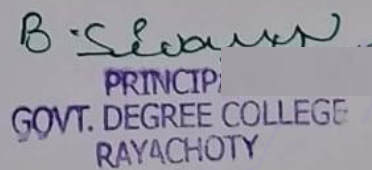 B.
PRINCIP
GOVT. DEGREE COLLEGE
RAYACHOTY